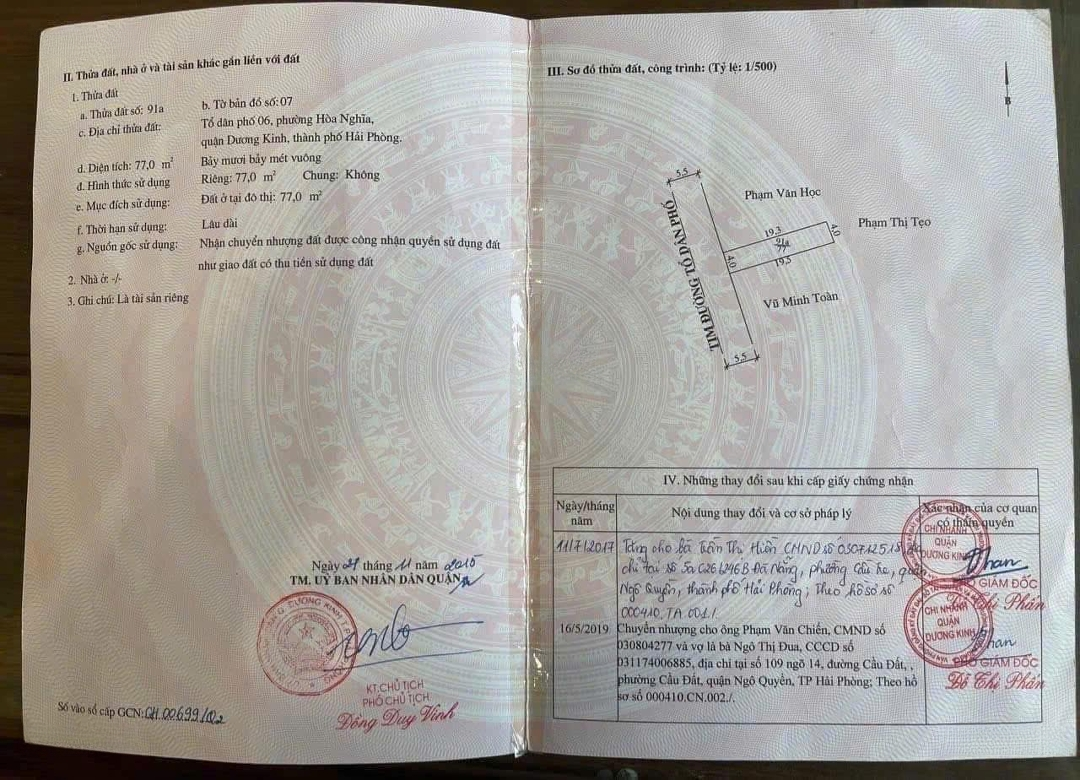 II. Thửa đất, nhà ở và tài sản khác gắn liền với đất
1. Thửa đất
a. Thửa đất số: 91a
b. Tờ bản đồ số: 07
c. Địa chỉ thửa đất:
Tổ dân phố 06, phường Hòa Nghĩa,
quận Dương Kinh, thành phố Hải Phòng.
d. Diện tích: 77,0 m²
Bảy mươi bảy mét vuông
đ. Hình thức sử dụng
Riêng: 77,0 m² Chung: Không
e. Mục đích sử dụng:
Đất ở tại đô thị: 77,0 m²
f. Thời hạn sử dụng:
Lâu dài
g. Nguồn gốc sử dụng:
Nhận chuyển nhượng đất được công nhận quyền sử dụng đất
như giao đất có thu tiền sử dụng đất
2. Nhà ở: -/-
3. Ghi chú: Là tài sản riêng
Ngày 27 tháng 11 năm 2015
TM. UỶ BAN NHÂN DÂN QUẬN
KT.CHỦ TỊCH
PHÓ CHỦ TỊCH
Đồng Duy Vinh
Số vào sổ cấp GCN: CH.00699/Q2
III. Sơ đồ thửa đất, công trình: (Tỷ lệ: 1/500)
B
5,5
Phạm Văn Học
Phạm Thị Tẹo
19,3
4,0
91a
77
4,0
19,5
TIM ĐƯỜNG TỔ DÂN PHỐ
Vũ Minh Toàn
5,5
IV. Những thay đổi sau khi cấp giấy chứng nhận
Ngày/tháng
năm
Nội dung thay đổi và cơ sở pháp lý
Xác nhận của cơ quan
có thẩm quyền
11/7/2017
Tặng cho bà Trần Thị Hiền CMND số
chỉ tại số 5a C26/246B Đà Nẵng, phường Cầu Tre, quận
Ngô Quyền, thành phố Hải Phòng; Theo hồ sơ số
000410.TA.001/.
CHI NHÁNH
QUẬN
DƯƠNG KINH
PHÓ GIÁM ĐỐC
Đỗ Thị Phấn
16/5/2019
Chuyển nhượng cho ông Phạm Văn Chiến, CMND số
030804277 và vợ là bà Ngô Thị Đua, CCCD số
031174006885, địa chỉ tại số 109 ngõ 14, đường Cầu Đất, ,
phường Cầu Đất, quận Ngô Quyền, TP Hải Phòng; Theo hồ
sơ số 000410.CN.002./.
CHI NHÁNH
QUẬN
DƯƠNG KINH
PHÓ GIÁM ĐỐC
Đỗ Thị Phấn